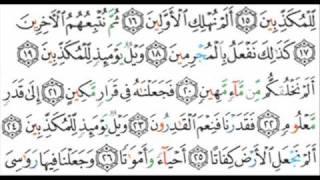 لِّلْمُكَذِّبِينَ ١٥ أَلَمْ نُهْلِكِ ٱلْأَوَّلِينَ ١٦ ثُمَّ نُتْبِعُهُمُ ٱلْـَٔاخِرِينَ
١٧ كَذَٰلِكَ نَفْعَلُ بِٱلْمُجْرِمِينَ ١٨ وَيْلٌ يَوْمَئِذٍ لِّلْمُكَذِّبِينَ ١٩
أَلَمْ نَخْلُقكُّم مِّن مَّآءٍ مَّهِينٍ ٢٠ فَجَعَلْنَٰهُ فِى قَرَارٍ مَّكِينٍ ٢١ إِلَىٰ قَدَرٍ
مَّعْلُومٍ ٢٢ فَقَدَرْنَا فَنِعْمَ ٱلْقَٰدِرُونَ ٢٣ وَيْلٌ يَوْمَئِذٍ لِّلْمُكَذِّبِينَ ٢٤
أَلَمْ نَجْعَلِ ٱلْأَرْضَ كِفَاتًا ٢٥ أَحْيَآءً وَأَمْوَٰتًا ٢٦ وَجَعَلْنَا فِيهَا رَوَٰسِىَ